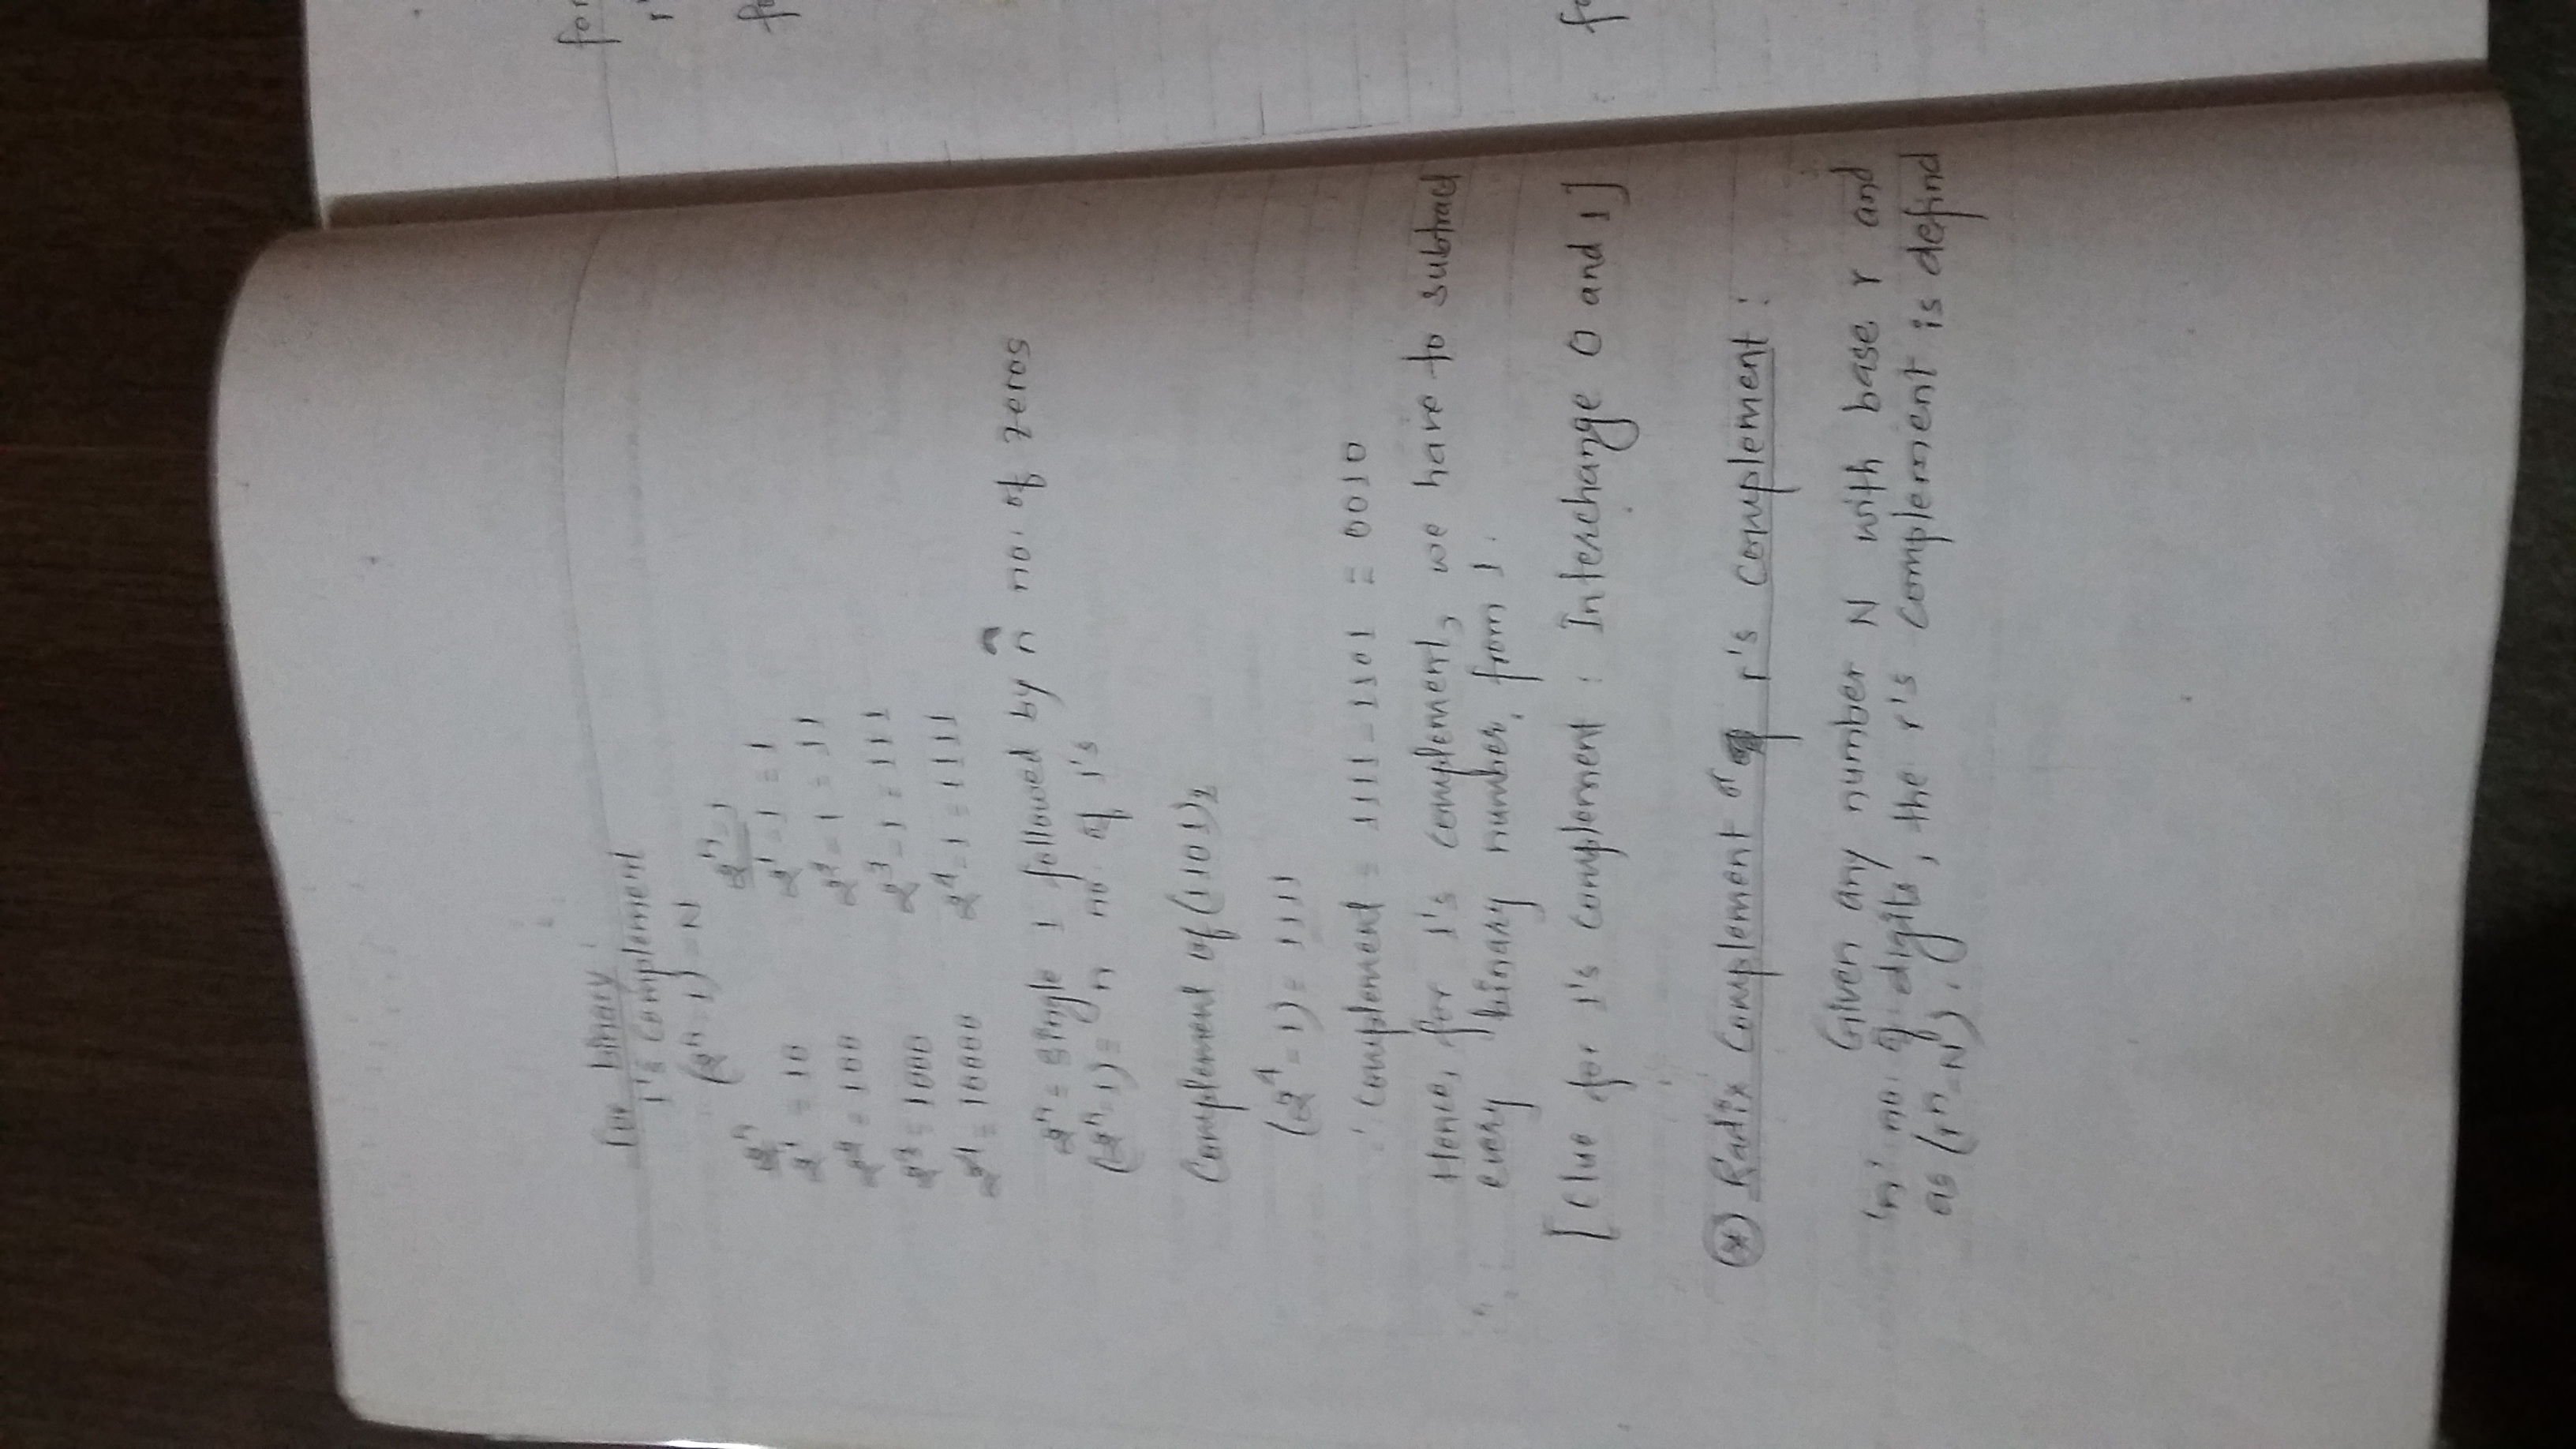 For binary :
1's complement
(2ⁿ-1)-N
2ⁿ 2ⁿ-1
2¹ = 10 2¹-1 = 1
2² = 100 2²-1 = 11
2³ = 1000 2³-1 = 111
2⁴ = 10000 2⁴-1 = 1111
2ⁿ = single 1 followed by n no. of zeros
(2ⁿ-1) = n no. of 1's
Complement of (1101)₂
(2⁴-1) = 1111
∴ complement = 1111-1101 = 0010
Hence, for 1's complement, we have to subtract
every binary number, from 1.
[Clue for 1's complement : Interchange 0 and 1]
(*) Radix Complement or r's complement :
Given any number N with base r and
'n' no. of digits, the r's complement is defind
as (rⁿ-N).
for
r'
fo
fo